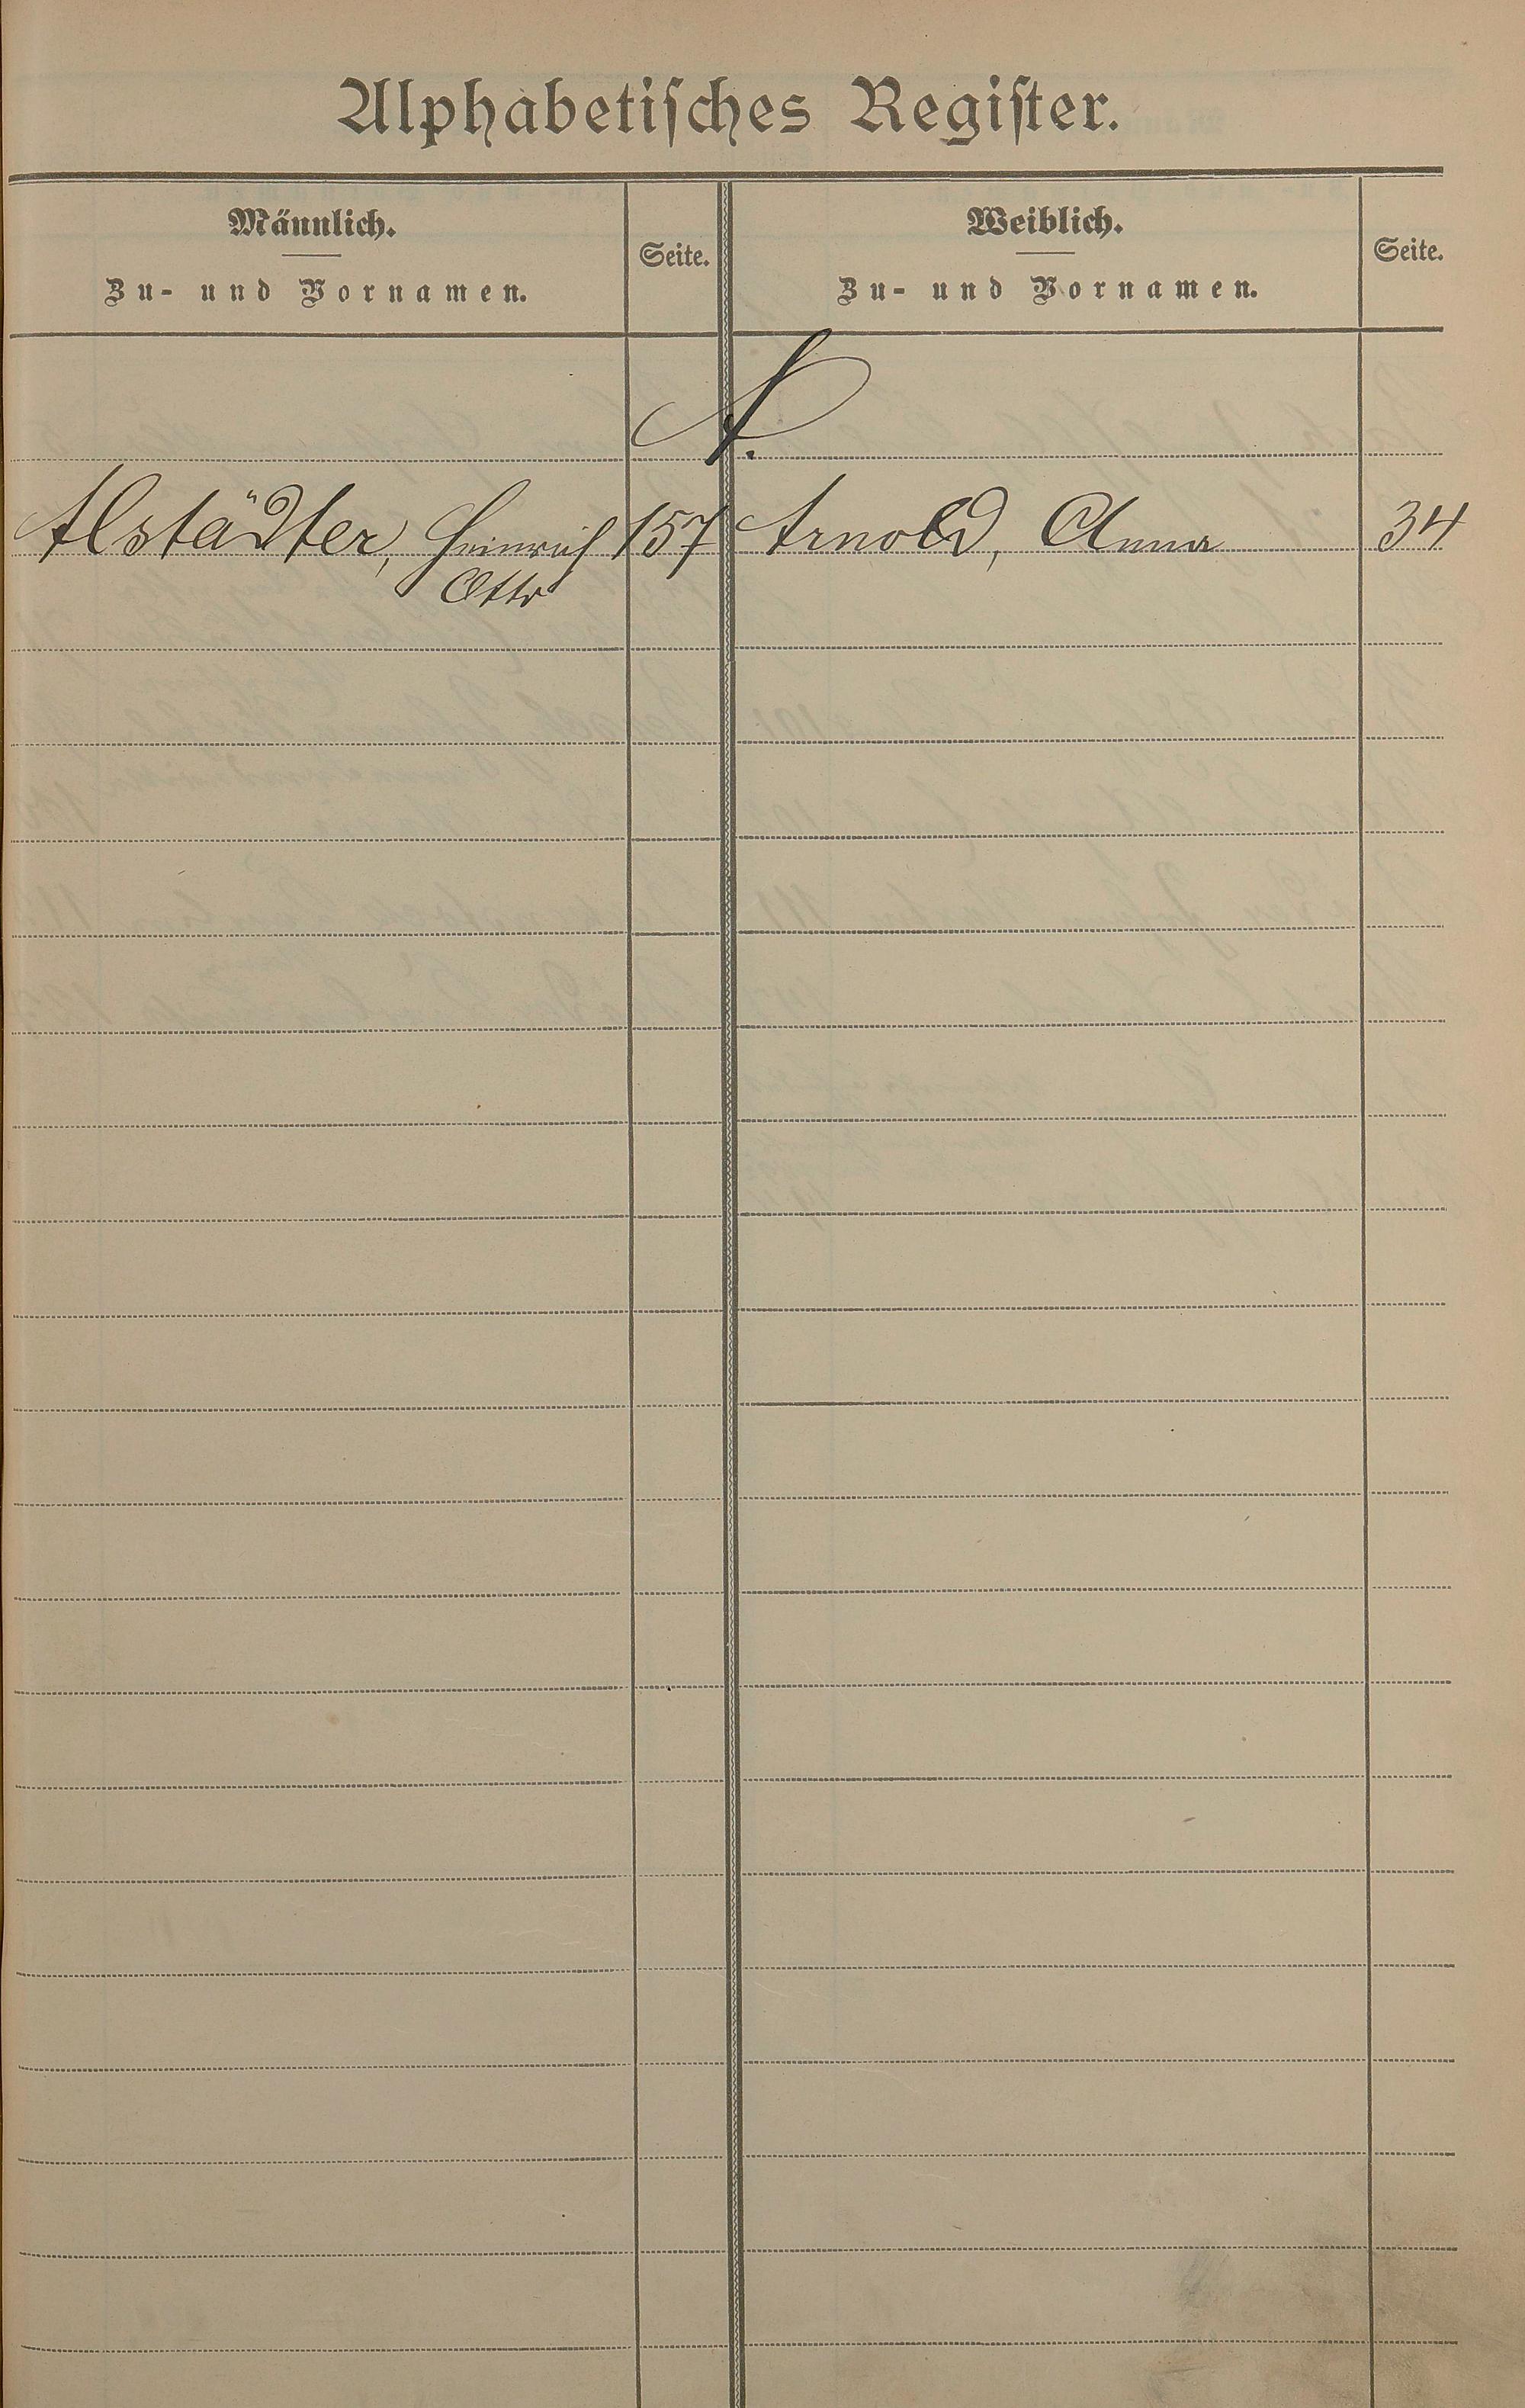 Alphabetisches Register.
Männlich.
Zu- und Vornamen.
Seite.
Weiblich.
Zu- und Vornamen.
Seite.
A.
Alstädter, Heinrich 157 Arnold, Anna 34
Otto